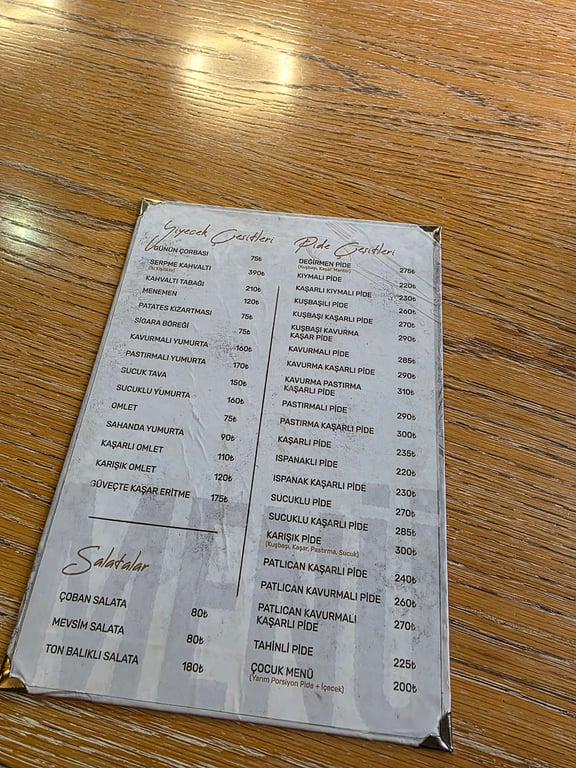 Yiyecek Çeşitleri
GÜNÜN ÇORBASI 75₺
SERPME KAHVALTI 390₺
(İki Kişilik)
KAHVALTI TABAĞI 210₺
MENEMEN 120₺
PATATES KIZARTMASI 75₺
SİGARA BÖREĞİ 75₺
KAVURMALI YUMURTA 160₺
PASTIRMALI YUMURTA 170₺
SUCUK TAVA 150₺
SUCUKLU YUMURTA 160₺
OMLET 75₺
SAHANDA YUMURTA 90₺
KAŞARLI OMLET 110₺
KARIŞIK OMLET 120₺
GÜVEÇTE KAŞAR ERİTME 175₺
Salatalar
ÇOBAN SALATA 80₺
MEVSİM SALATA 80₺
TON BALIKLI SALATA 180₺
Pide Çeşitleri
DEĞİRMEN PİDE 275₺
(Kuşbaşı, Kaşar, Mantar)
KIYMALI PİDE 220₺
KAŞARLI KIYMALI PİDE 230₺
KUŞBAŞILI PİDE 260₺
KUŞBAŞI KAŞARLI PİDE 270₺
KUŞBAŞI KAVURMA 290₺
KAŞAR PİDE
KAVURMALI PİDE 285₺
KAVURMA KAŞARLI PİDE 290₺
KAVURMA PASTIRMA 310₺
KAŞARLI PİDE
PASTIRMALI PİDE 290₺
PASTIRMA KAŞARLI PİDE 300₺
KAŞARLI PİDE 235₺
ISPANAKLI PİDE 220₺
ISPANAK KAŞARLI PİDE 230₺
SUCUKLU PİDE 270₺
SUCUKLU KAŞARLI PİDE 285₺
KARIŞIK PİDE 300₺
(Kuşbaşı, Kaşar, Pastırma, Sucuk)
PATLICAN KAŞARLI PİDE 240₺
PATLICAN KAVURMALI PİDE 260₺
PATLICAN KAVURMALI 270₺
KAŞARLI PİDE
TAHİNLİ PİDE 225₺
ÇOCUK MENÜ 200₺
(Yarım Porsiyon Pide + İçecek)
MENÜ